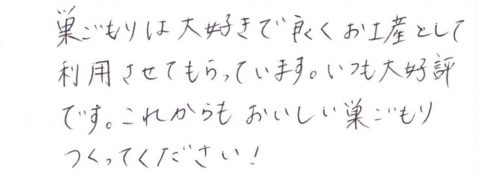 巣ごもりは大好きで良くお土産として
利用させてもらっています。いつも大好評
です。これからもおいしい巣ごもり
つくってください！